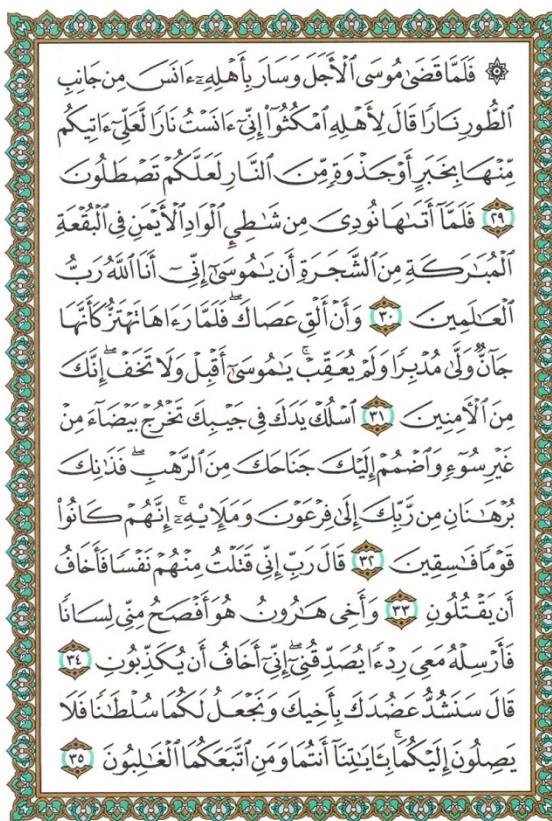 ۞ فَلَمَّا قَضَىٰ مُوسَى ٱلْأَجَلَ وَسَارَ بِأَهْلِهِۦٓ ءَانَسَ مِن جَانِبِ
ٱلطُّورِ نَارًا قَالَ لِأَهْلِهِ ٱمْكُثُوٓا۟ إِنِّىٓ ءَانَسْتُ نَارًا لَّعَلِّىٓ ءَاتِيكُم
مِّنْهَا بِخَبَرٍ أَوْ جَذْوَةٍ مِّنَ ٱلنَّارِ لَعَلَّكُمْ تَصْطَلُونَ
٢٩ فَلَمَّآ أَتَىٰهَا نُودِىَ مِن شَٰطِئِ ٱلْوَادِ ٱلْأَيْمَنِ فِى ٱلْبُقْعَةِ
ٱلْمُبَٰرَكَةِ مِنَ ٱلشَّجَرَةِ أَن يَٰمُوسَىٰٓ إِنِّىٓ أَنَا ٱللَّهُ رَبُّ
ٱلْعَٰلَمِينَ ٣٠ وَأَنْ أَلْقِ عَصَاكَ ۖ فَلَمَّا رَءَاهَا تَهْتَزُّ كَأَنَّهَا
جَآنٌّ وَلَّىٰ مُدْبِرًا وَلَمْ يُعَقِّبْ ۚ يَٰمُوسَىٰٓ أَقْبِلْ وَلَا تَخَفْ ۖ إِنَّكَ
مِنَ ٱلْـَٔامِنِينَ ٣١ ٱسْلُكْ يَدَكَ فِى جَيْبِكَ تَخْرُجْ بَيْضَآءَ مِنْ
غَيْرِ سُوٓءٍ وَٱضْمُمْ إِلَيْكَ جَنَاحَكَ مِنَ ٱلرَّهْبِ ۖ فَذَٰنِكَ
بُرْهَٰنَانِ مِن رَّبِّكَ إِلَىٰ فِرْعَوْنَ وَمَلَإِيهِۦٓ ۚ إِنَّهُمْ كَانُوا۟
قَوْمًا فَٰسِقِينَ ٣٢ قَالَ رَبِّ إِنِّى قَتَلْتُ مِنْهُمْ نَفْسًا فَأَخَافُ
أَن يَقْتُلُونِ ٣٣ وَأَخِى هَٰرُونُ هُوَ أَفْصَحُ مِنِّى لِسَانًا
فَأَرْسِلْهُ مَعِىَ رِدْءًا يُصَدِّقُنِىٓ ۖ إِنِّىٓ أَخَافُ أَن يُكَذِّبُونِ ٣٤
قَالَ سَنَشُدُّ عَضُدَكَ بِأَخِيكَ وَنَجْعَلُ لَكُمَا سُلْطَٰنًا فَلَا
يَصِلُونَ إِلَيْكُمَا ۚ بِـَٔايَٰتِنَآ أَنتُمَا وَمَنِ ٱتَّبَعَكُمَا ٱلْغَٰلِبُونَ ٣٥